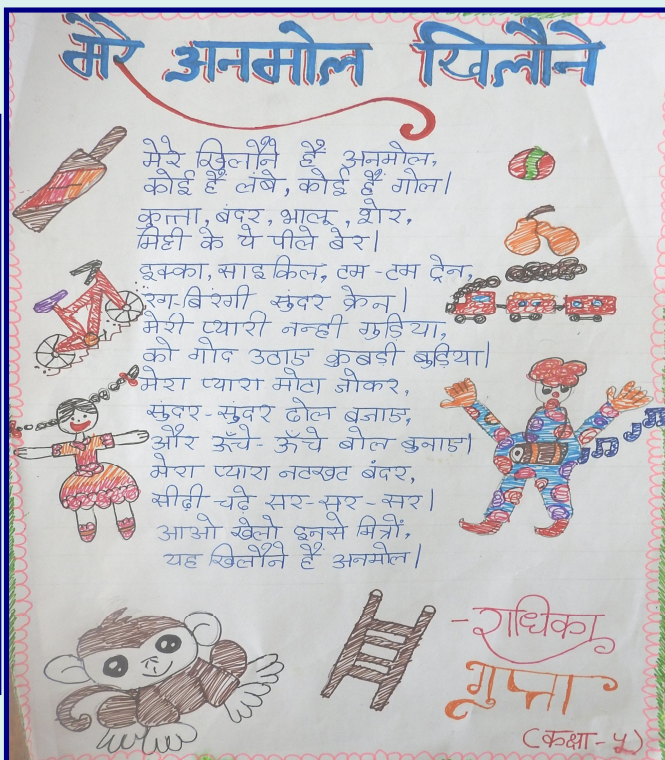 मेरे अनमोल खिलौने
मेरे खिलौने हैं अनमोल,
कोई हैं लंबे, कोई हैं गोल।
कुत्ता, बंदर, भालू, शेर,
मिट्टी के ये पीले बेर।
इक्का, साइकिल, टम-टम ट्रेन,
रंग-बिरंगी सुंदर क्रेन।
मेरी प्यारी नन्ही गुड़िया,
को गोद उठाए कुबड़ी बुढ़िया।
मेरा प्यारा मोटा जोकर,
सुंदर-सुंदर ढोल बजाए,
और ऊँचे-ऊँचे बोल सुनाए।
मेरा प्यारा नटखट बंदर,
सीढ़ी चढ़े सर-सर-सर।
आओ खेलो इनसे मित्रों,
यह खिलौने हैं अनमोल।
-राधिका
गुप्ता
(कक्षा-५)